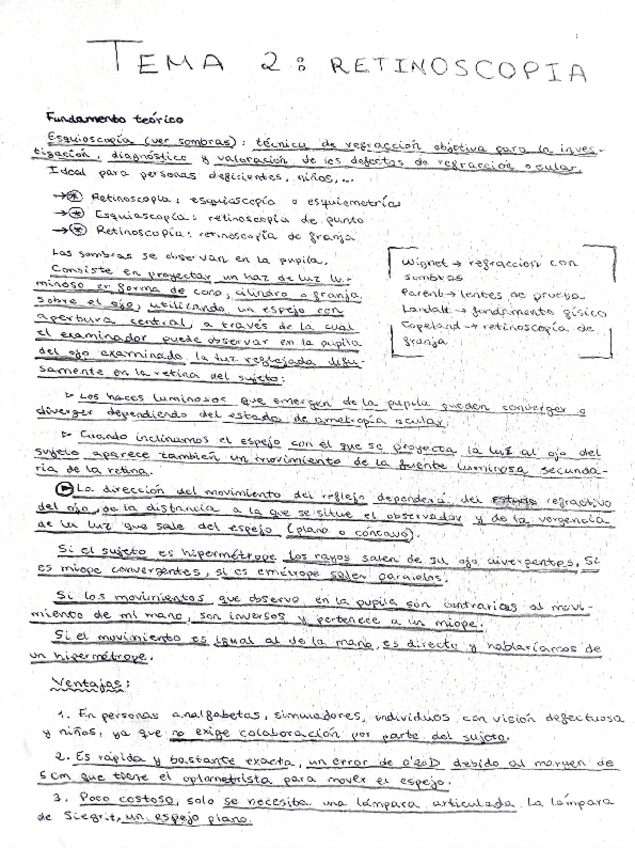 TEMA 2: RETINOSCOPIA
Fundamento teórico
Esquioscopía (ver sombras): técnica de refracción objetiva para la inves-
tigación, diagnóstico y valoración de los defectos de refracción ocular.
Ideal para personas deficientes, niños,...
→* Retinoscopia: esquioscopía o esquiometría
→* Esquiascopía: retinoscopia de punto
→* Retinoscopía: retinoscopía de franja
Las sombras se observan en la pupila.
Consiste en proyectar un haz de luz lu-
minoso en forma de cono, cilindro o franja
sobre el ojo, utilizando un espejo con
apertura central, a través de la cual
el examinador puede observar en la pupila
del ojo examinado la luz reflejada difu-
samente en la retina del sujeto:
Wignet → refraccion con
sombras
Parent → lentes de prueba
Landalt → fundamento físico
Copeland → retinoscopía de
franja
▷ Los haces luminosos que emergen de la pupila pueden converger o
diverger dependiendo del estado de ametropía ocular.
▷ Cuando inclinamos el espejo con el que se proyecta la luz al ojo del
sujeto aparece también un movimiento de la fuente luminosa secunda-
ria de la retina.
▷ La dirección del movimiento del reflejo dependerá del estado refractivo
del ojo, de la distancia a la que se situe el observador y de la vergencia
de la luz que sale del espejo (plano o cóncavo).
Si el sujeto es hipermétrope los rayos salen de su ojo divergentes. Si
es miope convergentes, si es emétrope salen paralelos.
Si los movimientos que observo en la pupila son contrarios al movi-
miento de mi mano, son inversos y pertenece a un miope.
Si el movimiento es igual al de la mano, es directo y hablaríamos de
un hipermétrope.
Ventajas:
1. En personas analfabetas, simuladores, individuos con visión defectuosa
y niños, ya que no exige colaboración por parte del sujeto.
2. Es rápida y bastante exacta, un error de 0'20D debido al margen de
5cm que tiene el optometrista para mover el espejo.
3. Poco costosa, solo se necesita una lámpara articulada. La lámpara
de Siegrit, un espejo plano.